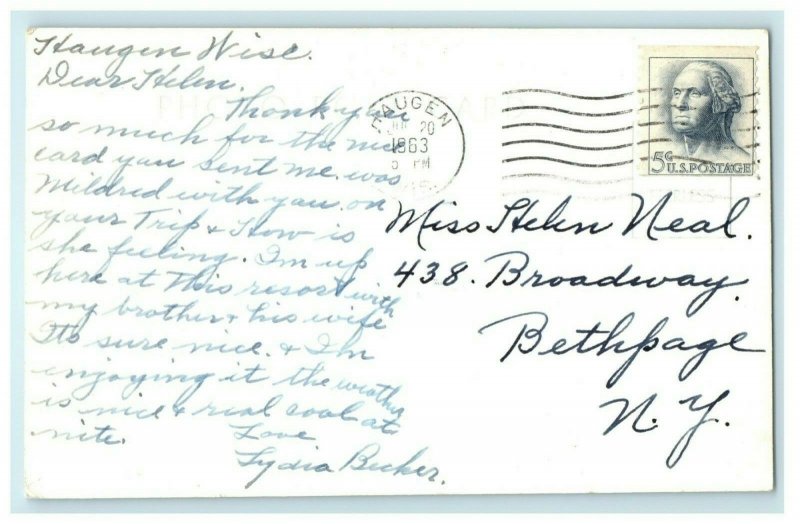 Haugen Wise.
Dear Helen.
Thank you
so much for the nice
card you sent me, was
Mildred with you on
your Trip & How is
she feeling. I'm up
here at this resort with
my brother & his wife
Its sure nice. & I'm
enjoying it the weather
is nice & real cool at
nite.
Love
Lydia Becker.
HAUGEN
20
1963
PM
5¢
U.S. POSTAGE
Miss Helen Neal.
438. Broadway.
Bethpage
N. Y.